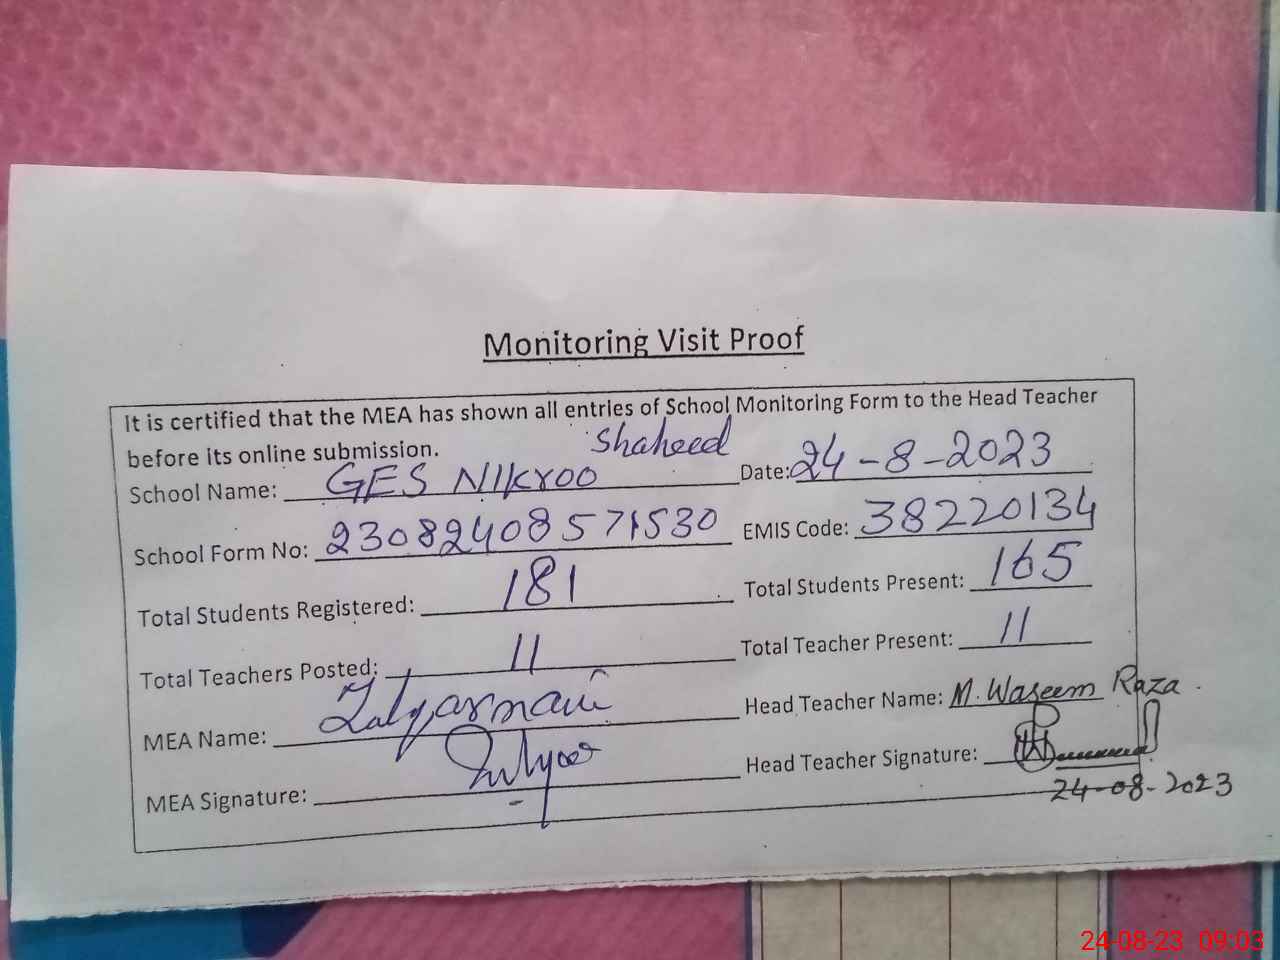 Monitoring Visit Proof
It is certified that the MEA has shown all entries of School Monitoring Form to the Head Teacher
before its online submission.
Shaheed
School Name: GES Nikroo Date: 24-8-2023
School Form No: 23082408571530 EMIS Code: 38220134
Total Students Registered: 181 Total Students Present: 165
Total Teachers Posted: 11 Total Teacher Present: 11
MEA Name: Head Teacher Name: M. Waseem Raza
MEA Signature: Head Teacher Signature:
24-08-2023
24-08-23 09:03